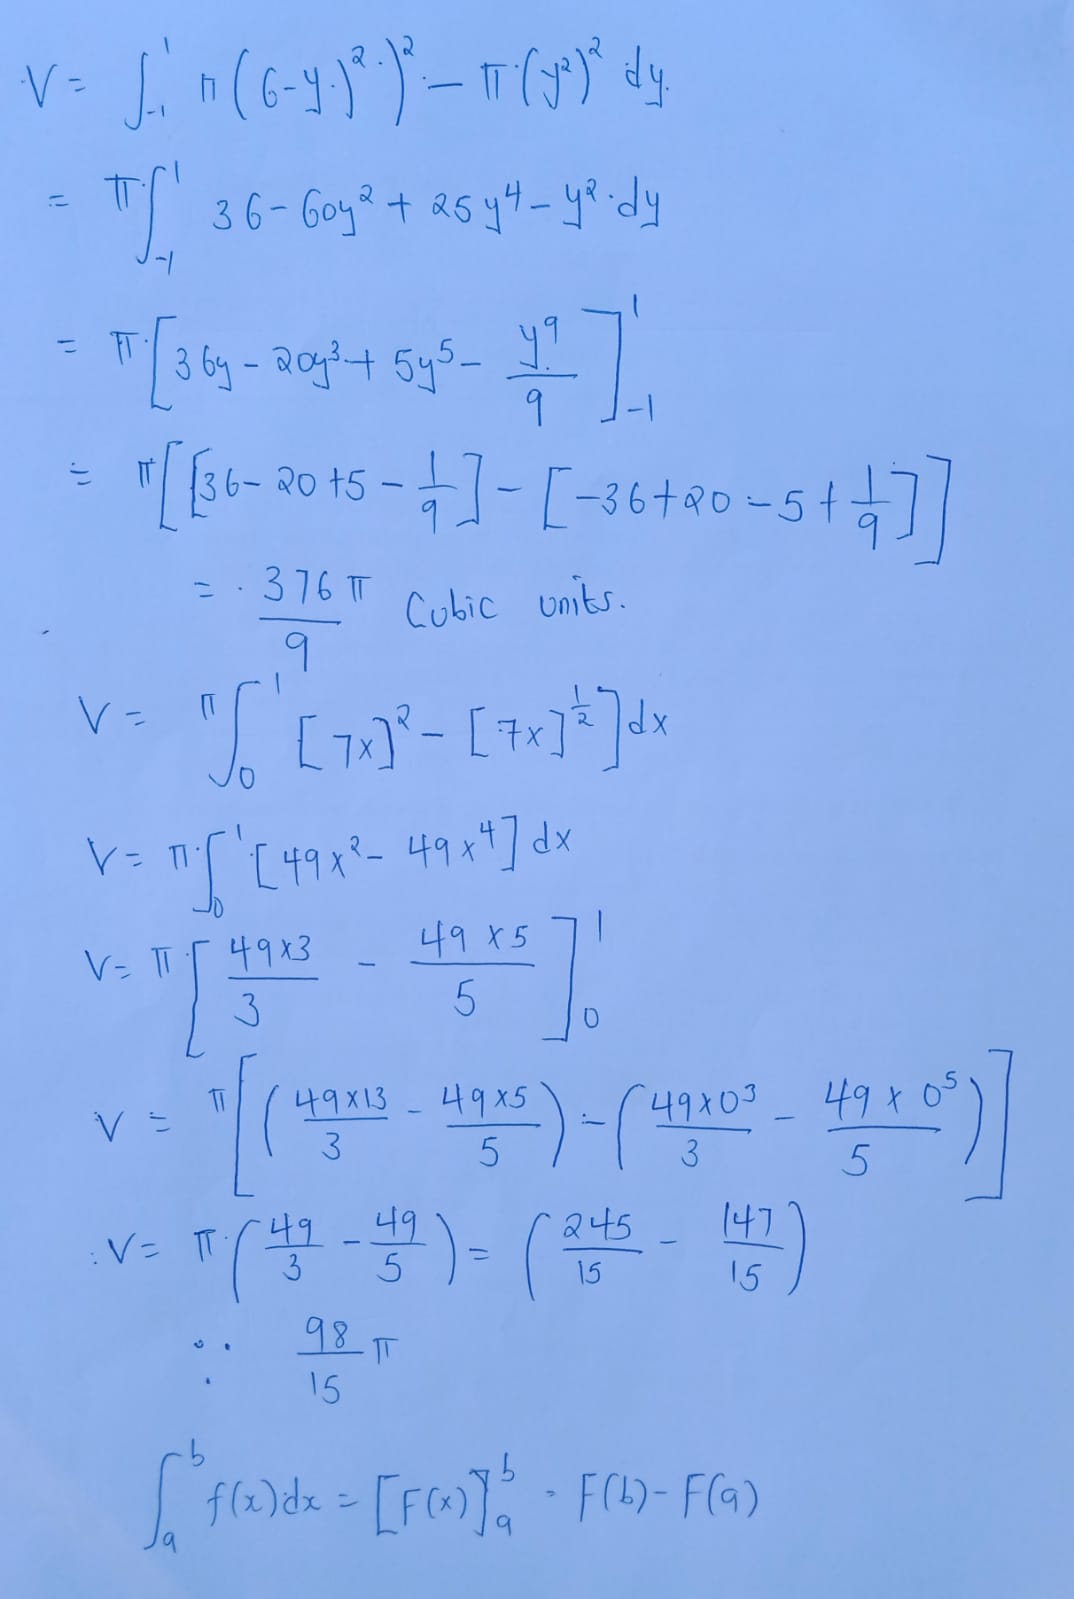 V = ∫₋₁¹ π(6-y)²)² - π(y²)² dy
= π∫₋₁¹ 36 - 60y² + 25y⁴ - y² dy
= π[36y - 20y³ + 5y⁵ - y⁹/9]₋₁¹
= π[[36 - 20 + 5 - 1/9] - [-36 + 20 - 5 + 1/9]]
= 376π/9 Cubic units.
V = π∫₀¹ [7x]² - [7x]^½] dx
V = π∫₀¹ [49x² - 49x⁴] dx
V = π[49x3/3 - 49x5/5]₀¹
V = π[(49x13/3 - 49x5/5) - (49x0³/3 - 49x0⁵/5)]
V = π(49/3 - 49/5) = (245/15 - 147/15)
∴ 98/15 π
∫ₐᵇ f(x)dx = [F(x)]ₐᵇ = F(b) - F(a)